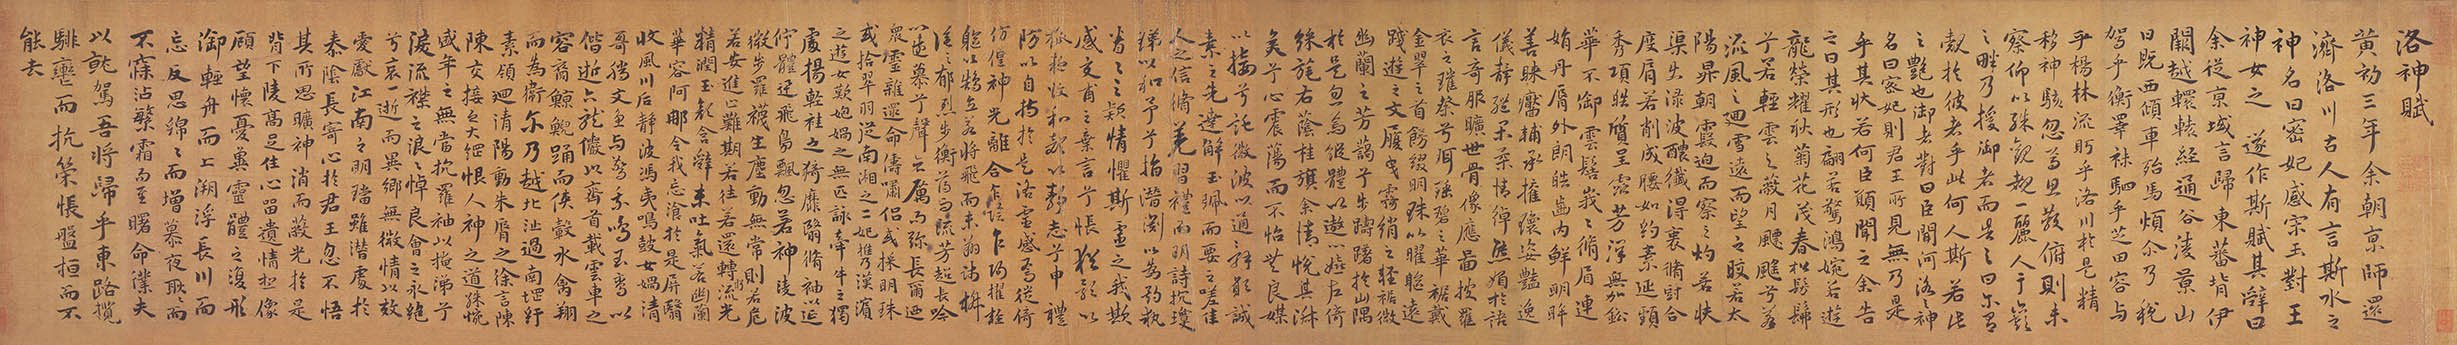 洛神賦
黃初三年余朝京師還
濟洛川古人有言斯水之
神名曰宓妃感宋玉對王
神女之遂作斯賦其辭曰
余從京域言歸東藩背伊
闕越轘轅經通谷淩景山
日既西傾車殆馬煩尒乃稅
駕乎蘅皋秣駟乎芝田容與
乎楊林流眄乎洛川於是精
移神駭忽焉思散俯則未
察仰以殊觀覩一麗人于巖
之畔乃援御者而告之曰尔有
覿於彼者乎此何人斯若此
之艷也御者對曰臣聞河洛之神
名曰宓妃則君王所見無乃是
乎其狀若何臣願聞之余告
之曰其形也翩若驚鴻婉若遊
龍榮耀秋菊花茂春松髣髴
兮若輕雲之蔽月飄颻兮若
流風之迴雪遠而望之皎若太
陽昇朝霞迫而察之灼若芙
渠出淥波穠纖得衷脩短合
度肩若削成腰如約素延頸
秀項皓質呈露芳澤無加鉛
華不御雲髻峩峩脩眉連
娟丹脣外朗皓齒內鮮明眸
善睞靨輔承權瓌姿豔逸
儀靜體閑柔情綽態媚於語
言奇服曠世骨像應圖披羅
衣之璀粲兮珥瑤碧之華裾戴
金翠之首飾綴明珠以耀軀遠
踐遊之文履曳霧綃之輕裾微
幽蘭之芳藹兮步踟躕於山隅
於是忽焉縱體以遨以嬉左倚
綵旄右蔭桂旗余情悅其淑
美兮心震蕩而不怡無良媒
以接兮託微波以通辭願誠
素之先達解玉珮而要之嗟佳
人之信脩羌習禮而明詩抗瓊
珶以和予兮指潛淵以為期執
眷眷之欵情懼斯靈之我欺
感交甫之棄言兮悵猶豫以
狐疑收和顏以靜志兮申禮
防以自持於是洛靈感焉徙倚
彷徨神光離合乍陰乍陽擢輕
軀以鶴立若將飛而未翔踐椒
塗之郁烈步蘅薄而流芳超長吟
以遠慕兮聲哀厲而彌長爾迺
眾靈雜遝命儔嘯侶或採明珠
或拾翠羽從南湘之二妃攜漢濱
之遊女歎匏媧之無匹詠牽牛之獨
處揚輕袿之猗靡翳脩袖以延
佇體迅飛鳧飄忽若神陵波
微步羅襪生塵動無常則若危
若安進止難期若往若還轉流光
精潤玉顏含辭未吐氣若幽蘭
華容阿那令我忘湌於是屏翳
收風川后靜波馮夷鳴鼓女媧清
歌騰文魚以警乘鳴玉鸞以
偕逝六龍儼以齊首載雲車之
容裔鯨鯢踊而俠轂水禽翔
而為衛尔乃越北沚過南堈紆
素領迴清陽動朱脣之徐言陳
陳交接之大綱恨人神之道殊怨
盛年之無當抗羅袖以掩涕兮
淚流襟之浪浪悼良會之永絕
兮哀一逝而異鄉無微情以效
愛獻江南之明璫雖潛處於
太陰長寄心於君王忽不悟
其所思曠神消而蔽光於是
背下陵高足往心留遺情想像
顧望懷憂冀靈體之復形
御輕舟而上溯浮長川而
忘反思綿綿而增慕夜耿耿而
不寐沾繁霜而至曙命僕夫
以就駕吾將歸乎東路攬
騑轡而抗策悵盤桓而不
能去